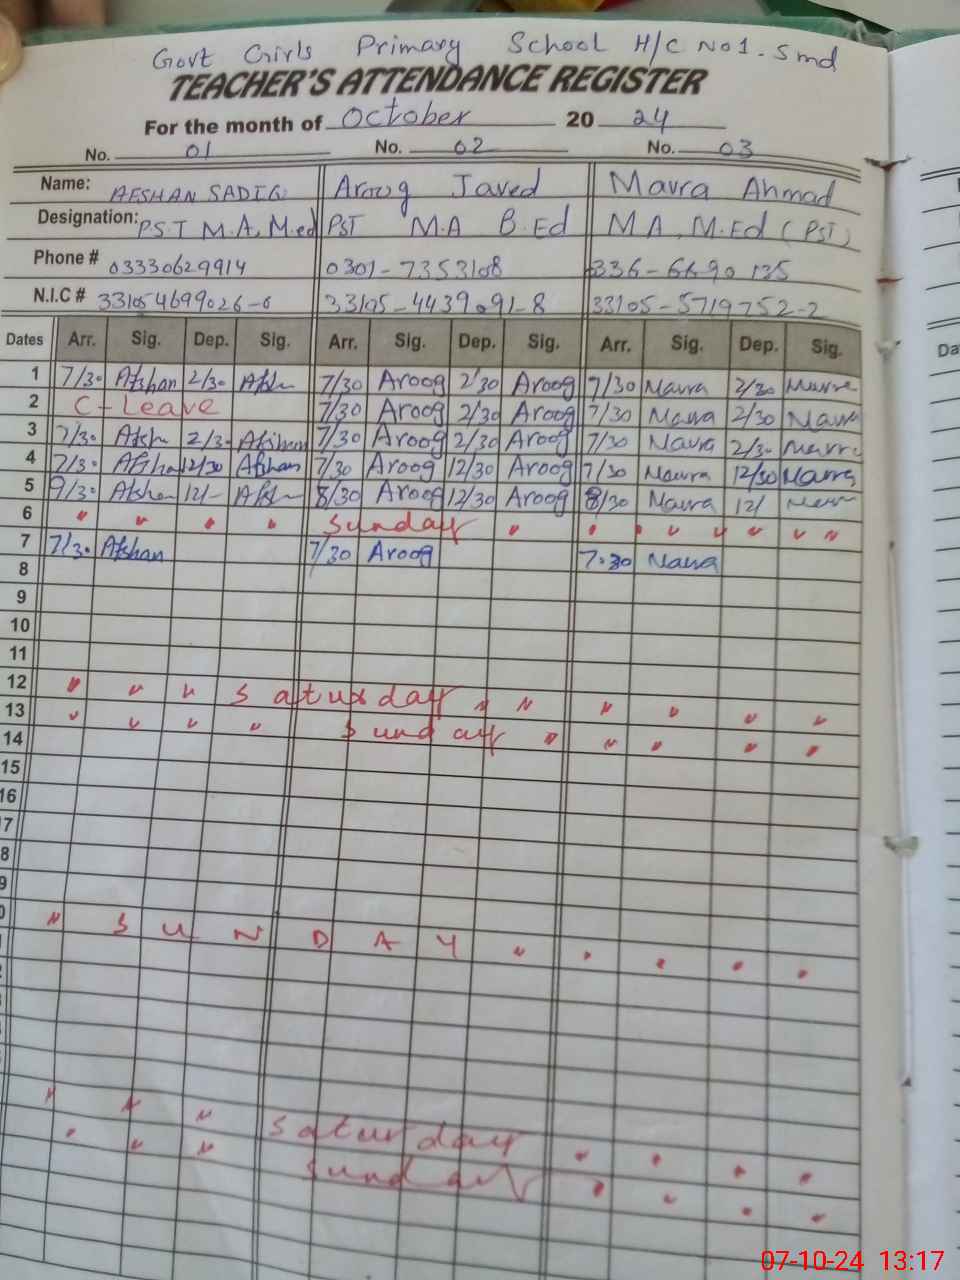 Govt Girls Primary School H/C No 1 - Smd
TEACHER'S ATTENDANCE REGISTER
For the month of October 20 24
No. 01 No. 02 No. 03
Name: AFSHAN SADIQ Aroog Javed Mavra Ahmad
Designation: P.S.T M.A, M.ed PST M.A B.Ed M A, M.Ed (PST)
Phone # 03330629914 0301-7353108 336-6690135
N.I.C # 331054699026-0 33105-4439091-8 33105-5719752-2
Dates Arr. Sig. Dep. Sig. Arr. Sig. Dep. Sig. Arr. Sig. Dep. Sig.
1 7/30 Afshan 2/30 Afshn 7/30 Aroog 2/30 Aroog 7/30 Mavra 2/30 Mavra
2 C-Leave 7/30 Aroog 2/30 Aroog 7/30 Mavra 2/30 Mavra
3 7/30 Afshn 2/30 Afshan 7/30 Aroog 2/30 Aroog 7/30 Mavra 2/30 Mavra
4 7/30 Afshan 12/30 Afshan 7/30 Aroog 12/30 Aroog 7/30 Mavra 12/30 Mavra
5 9/30 Afshan 12/- Afshn 8/30 Aroog 12/30 Aroog 8/30 Mavra 12/
6 " " " " Sunday " " " " " " " "
7 7/30 Afshan 7/30 Aroog 7:30 Mavra
8
9
10
11
12 " " " Saturday " " " " " "
13 " " " " Sunday " " " " "
14
15
16
7
8
9
0 " SUNDAY " " " " "
" " " Saturday " " " "
" " " Sunday " " " "
07-10-24 13:17